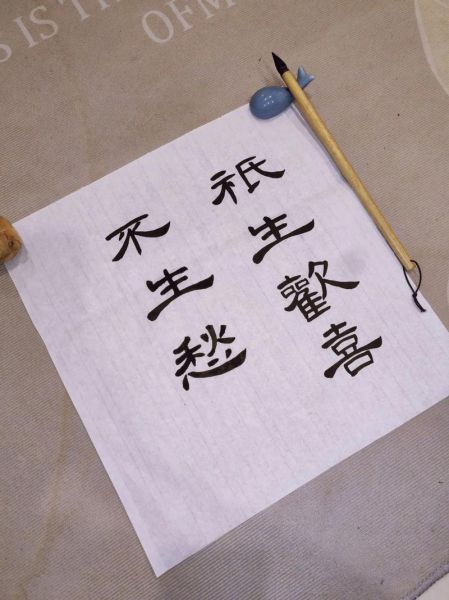 祇生歡喜
不生愁
S IS TH
OFM